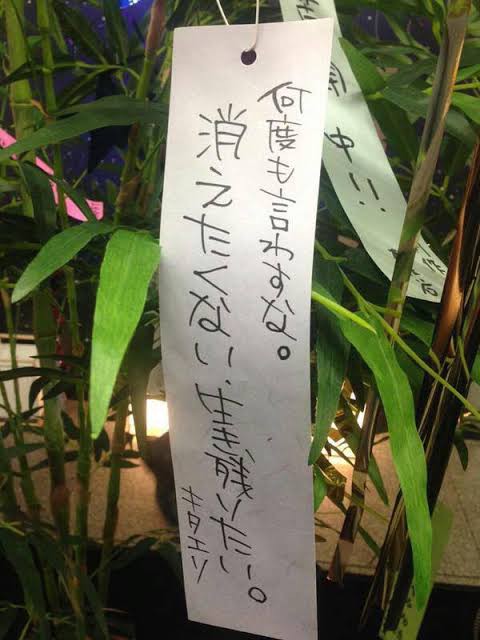 何度も言わすな。
消えたくない、生き残りたい。
キタエリ
中!!